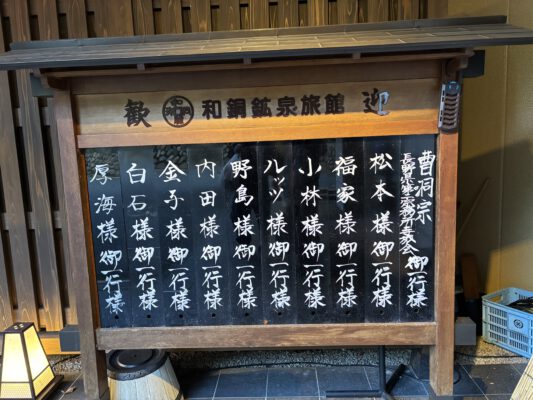 歓 和銅鉱泉旅館 迎
曹洞宗
御一行様
松本様御一行様
福家様御一行様
小林様御一行様
ルッツ様御一行様
野島様御一行様
内田様御一行様
金子様御一行様
白石様御一行様
厚海様御一行様